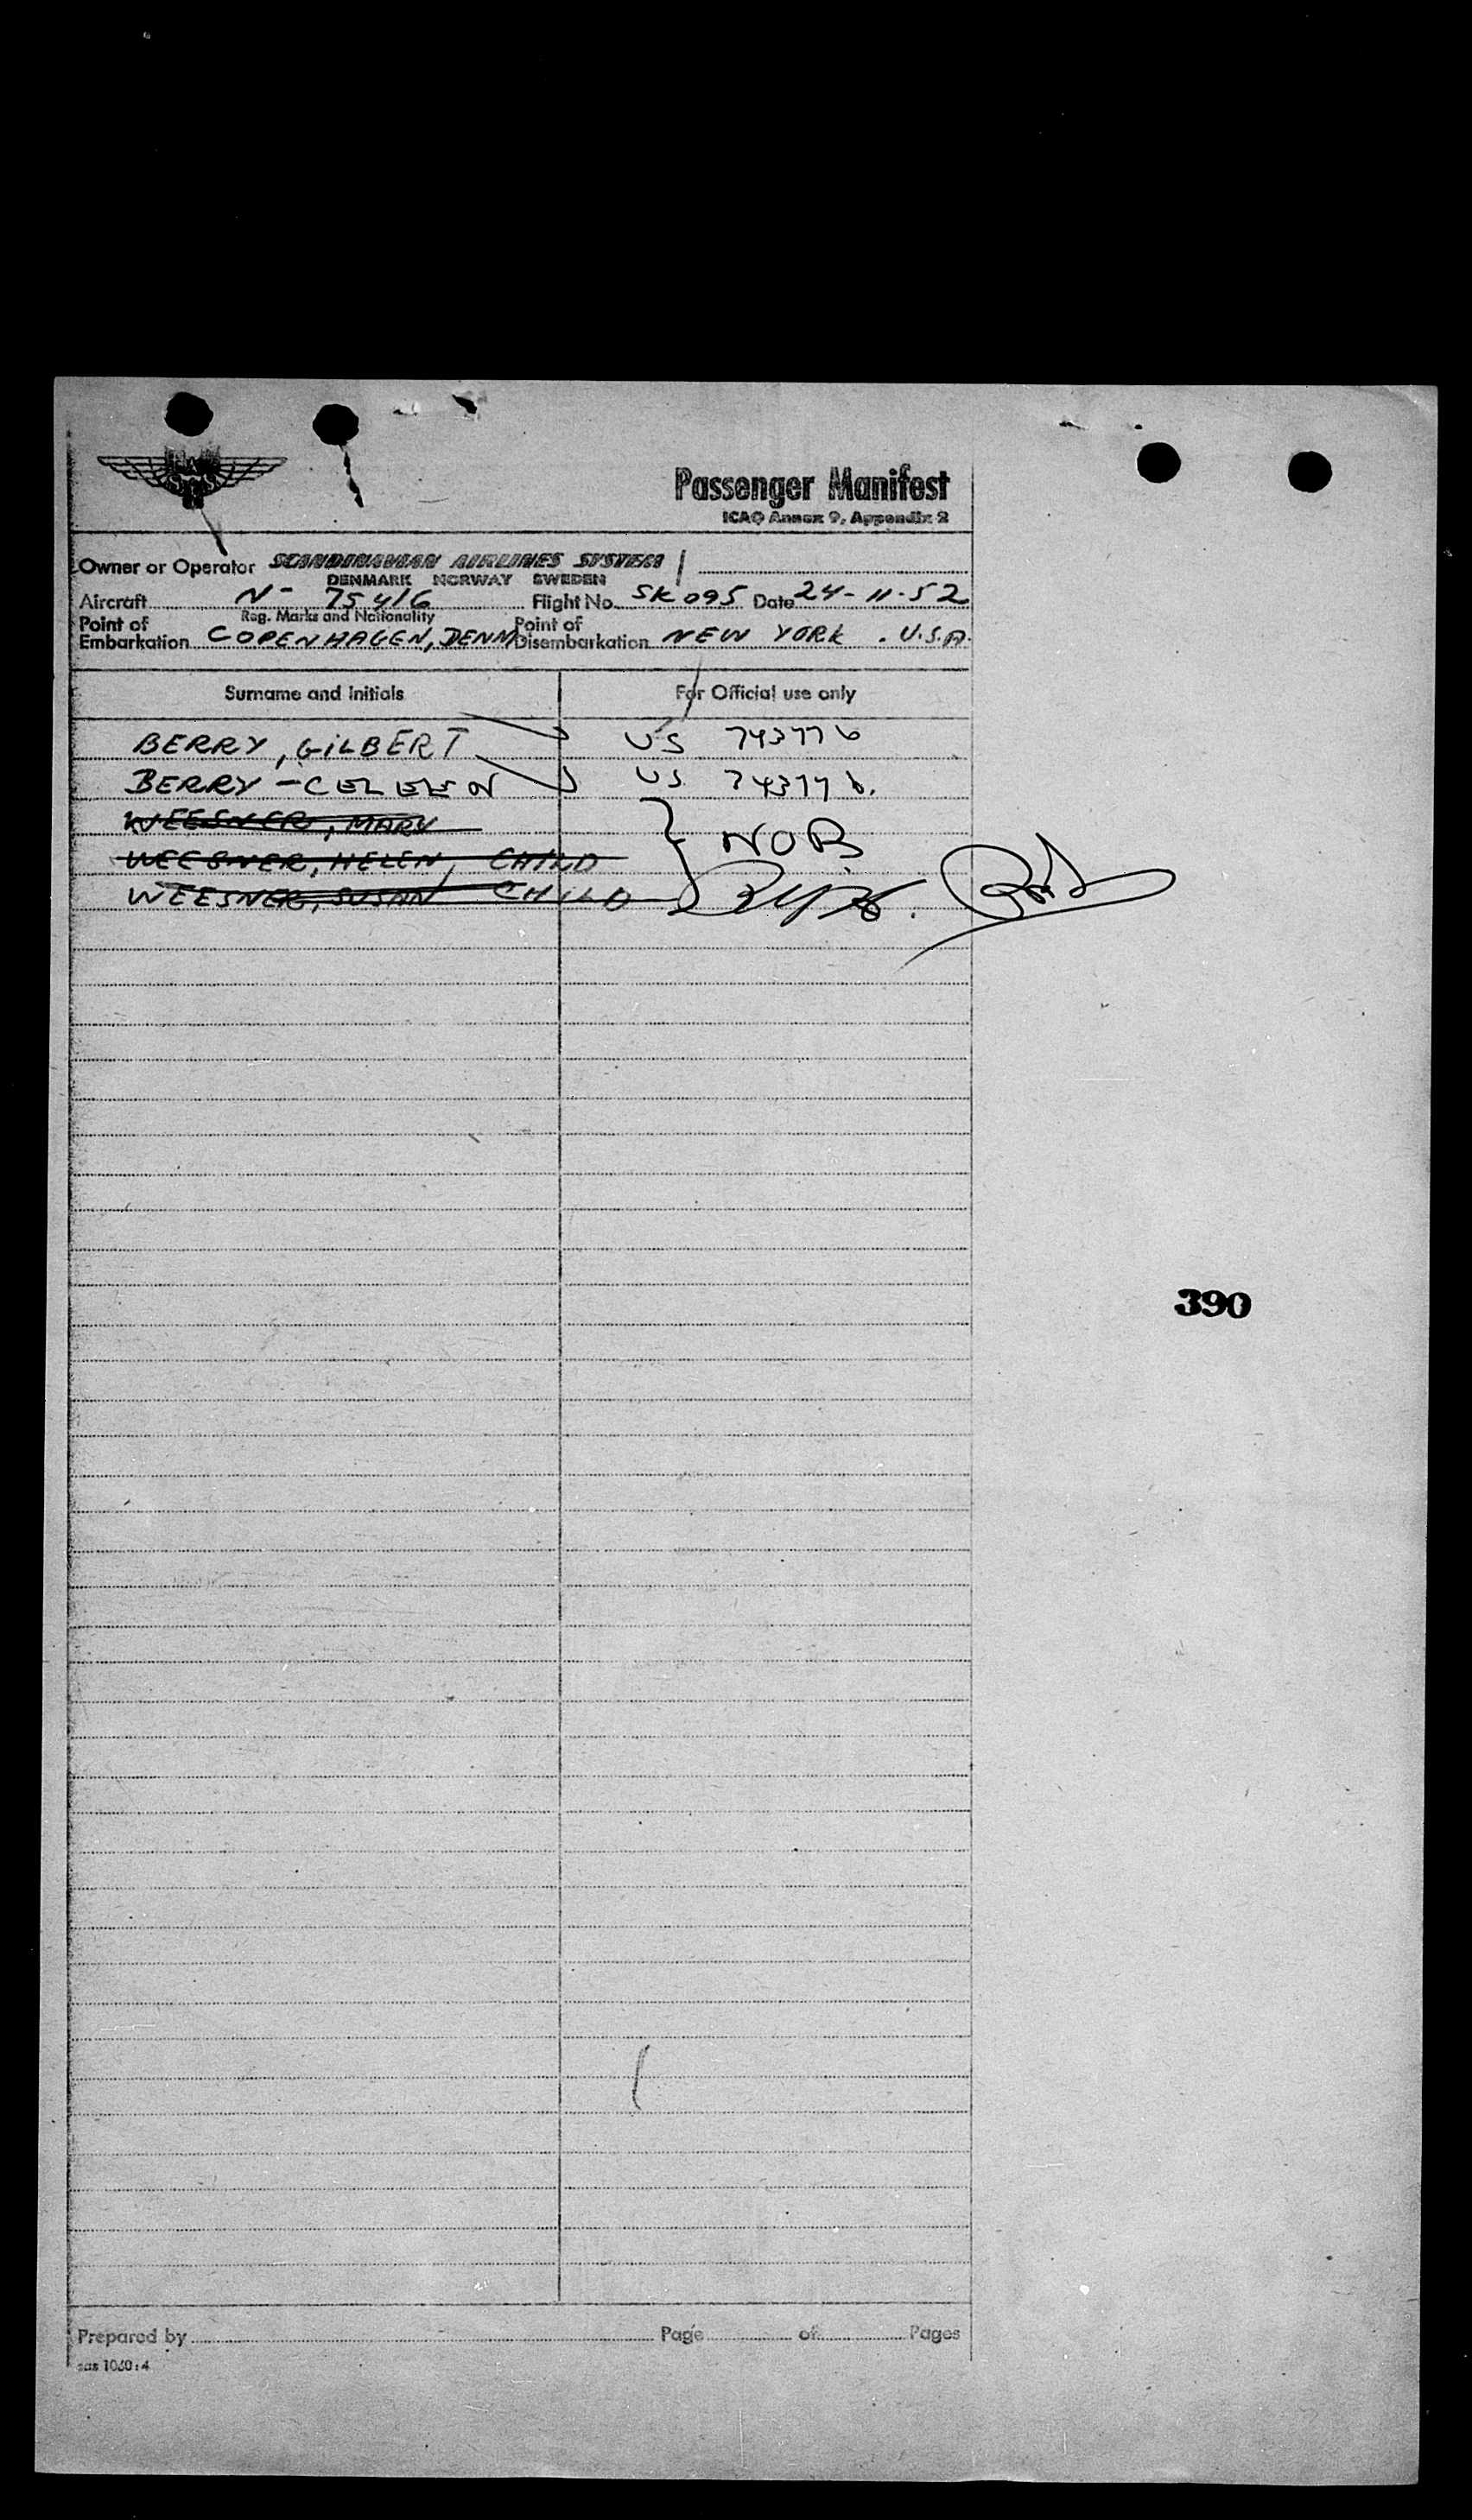 Passenger Manifest
ICAO Annex 9, Appendix 2
Owner or Operator SCANDINAVIAN AIRLINES SYSTEM
DENMARK NORWAY SWEDEN
Aircraft N- 75416 Flight No. SK 095 Date 24-11-52
Reg. Marks and Nationality
Point of Embarkation COPENHAGEN, DENM Point of Disembarkation NEW YORK . U.S.A.
Surname and Initials For Official use only
BERRY, GILBERT US 743776
BERRY - CELEEN US 743776.
WEESNER, MARY
NOB
WEESNER, HELEN, CHILD
WEESNER, SUSAN CHILD
390
Prepared by Page of Pages
sas 1060:4